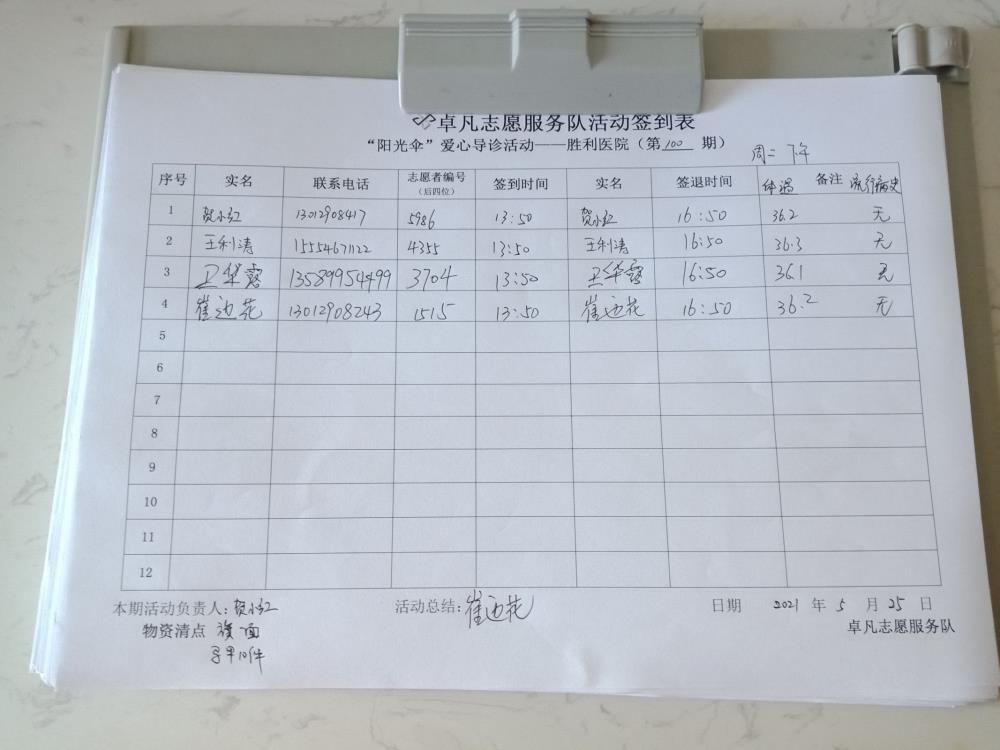 卓凡志愿服务队活动签到表
“阳光伞”爱心导诊活动——胜利医院（第100期）
周二 下午
序号 实名 联系电话 志愿者编号（后四位） 签到时间 实名 签退时间 体温 备注 流行病史
1 贺小红 13012908417 5986 13:50 贺小红 16:50 36.2 无
2 王利涛 15554671122 4355 13:50 王利涛 16:50 36.3 无
3 卫华露 13589954499 3704 13:50 卫华露 16:50 36.1 无
4 崔边花 13012908243 1515 13:50 崔边花 16:50 36.2 无
5
6
7
8
9
10
11
12
本期活动负责人：贺小红 活动总结：崔边花 日期 2021 年 5 月 25 日
物资清点 旗 面
卓凡志愿服务队
马甲10件